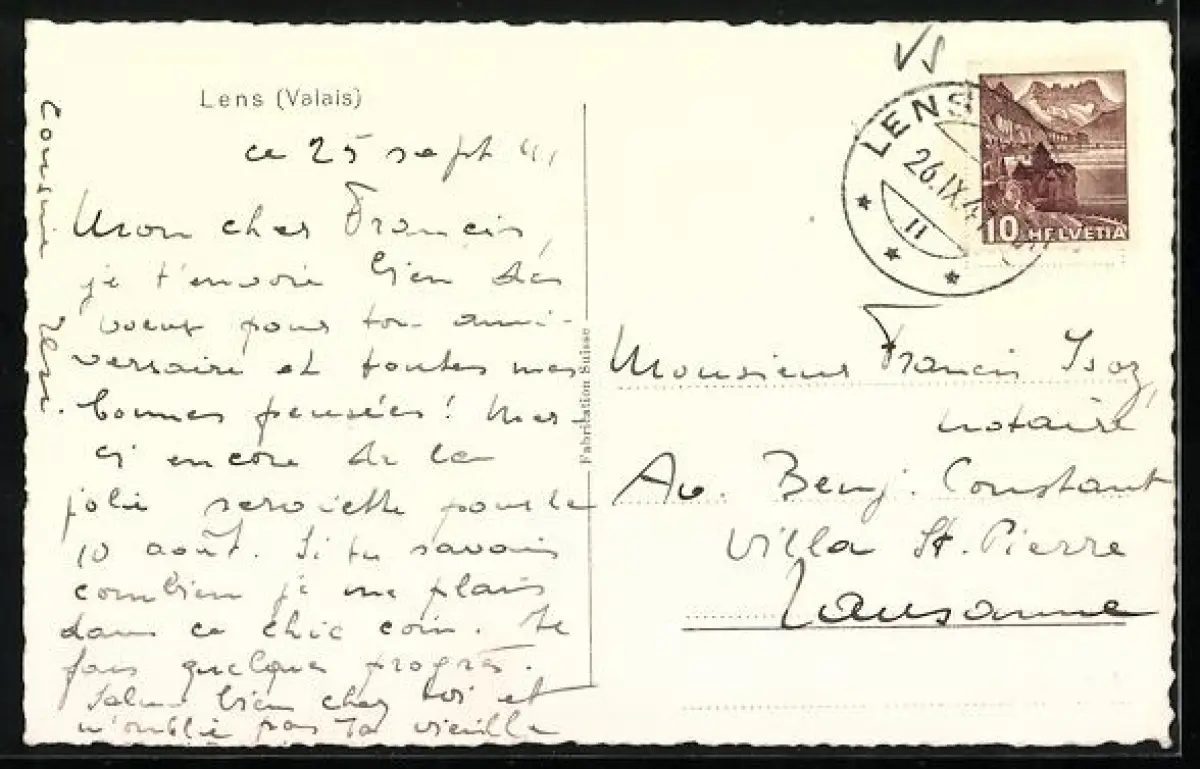 Lens (Valais)
ce 25 sept 41
Mon cher Francis,
je t'envoie bien des
voeux pour ton anni-
versaire et toutes mes
bonnes pensées! Mer-
ci encore de la
jolie serviette pour le
10 août. Si tu savais
combien je me plais
dans ce chic coin. Je
fais quelques progrès.
Salue bien chez toi et
n'oublie pas ta vieille
cousine
Fabrication Suisse
VS
LENS
26.IX.4
II
10 HELVETIA
Monsieur Francis Isoz,
notaire
Av. Benj. Constant
Villa St. Pierre
Lausanne